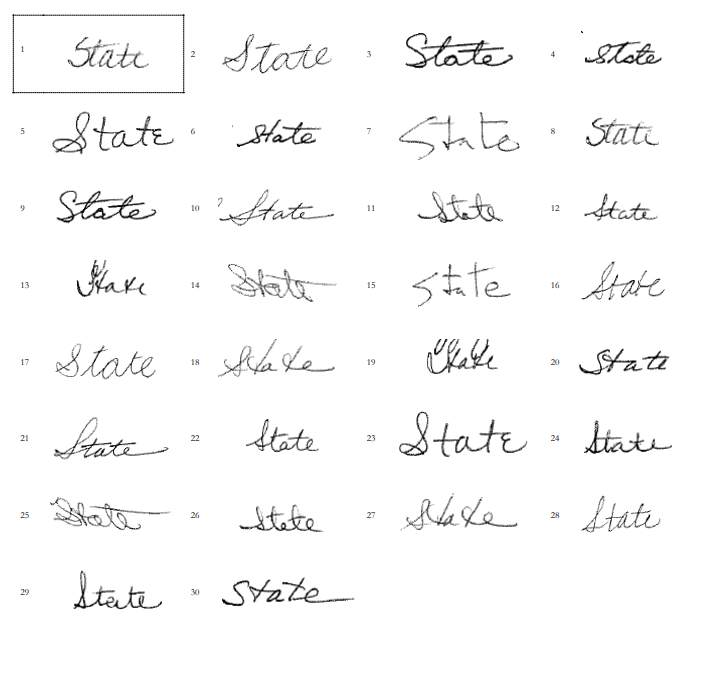 1 State 2 State 3 State 4 State
5 State 6 State 7 State 8 State
9 State 10 State 11 State 12 State
13 State 14 State 15 State 16 State
17 State 18 State 19 State 20 State
21 State 22 State 23 State 24 State
25 State 26 State 27 State 28 State
29 State 30 State